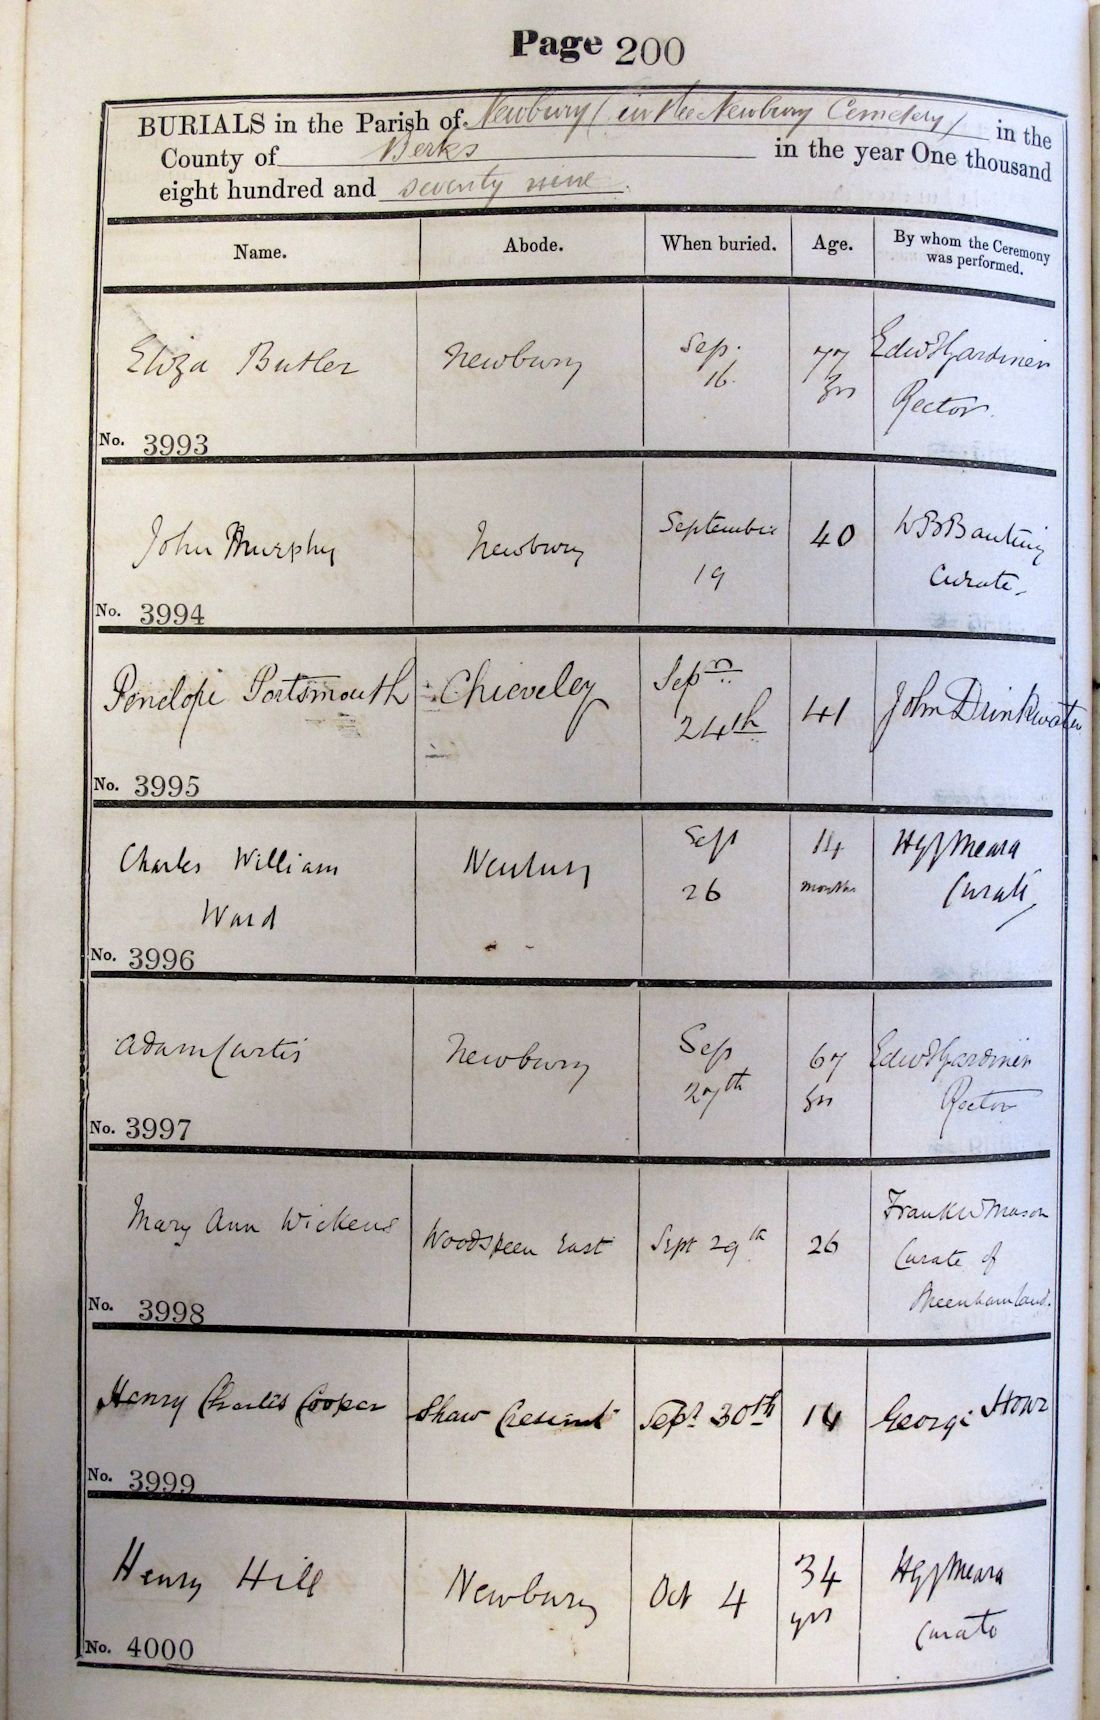 Page 200
BURIALS in the Parish of Newbury (in the Newbury Cemetery) in the
County of Berks in the year One thousand
eight hundred and seventy nine.
Name. Abode. When buried. Age. By whom the Ceremony was performed.
Eliza Butler Newbury Sep. 16. 77 yrs Edwd Gardiner Rector.
No. 3993
John Murphy Newbury September 19 40 W B Banting Curate.
No. 3994
Penelope Portsmouth Chieveley Sepr. 24th 41 John Drinkwater
No. 3995
Charles William Newbury Sept 26 14 months Meara Curate
Ward
No. 3996
Adam Curtis Newbury Sep 27th 67 yrs Edwd Gardiner Rector
No. 3997
Mary Ann Wickens Woodspeen East Sept 29th 26 Frank W Mason Curate of
No. 3998
Henry Charles Cooper Shaw Cresent Sept 30th 14 George Howe
No. 3999
Henry Hill Newbury Oct 4 34 yrs Meara Curate
No. 4000